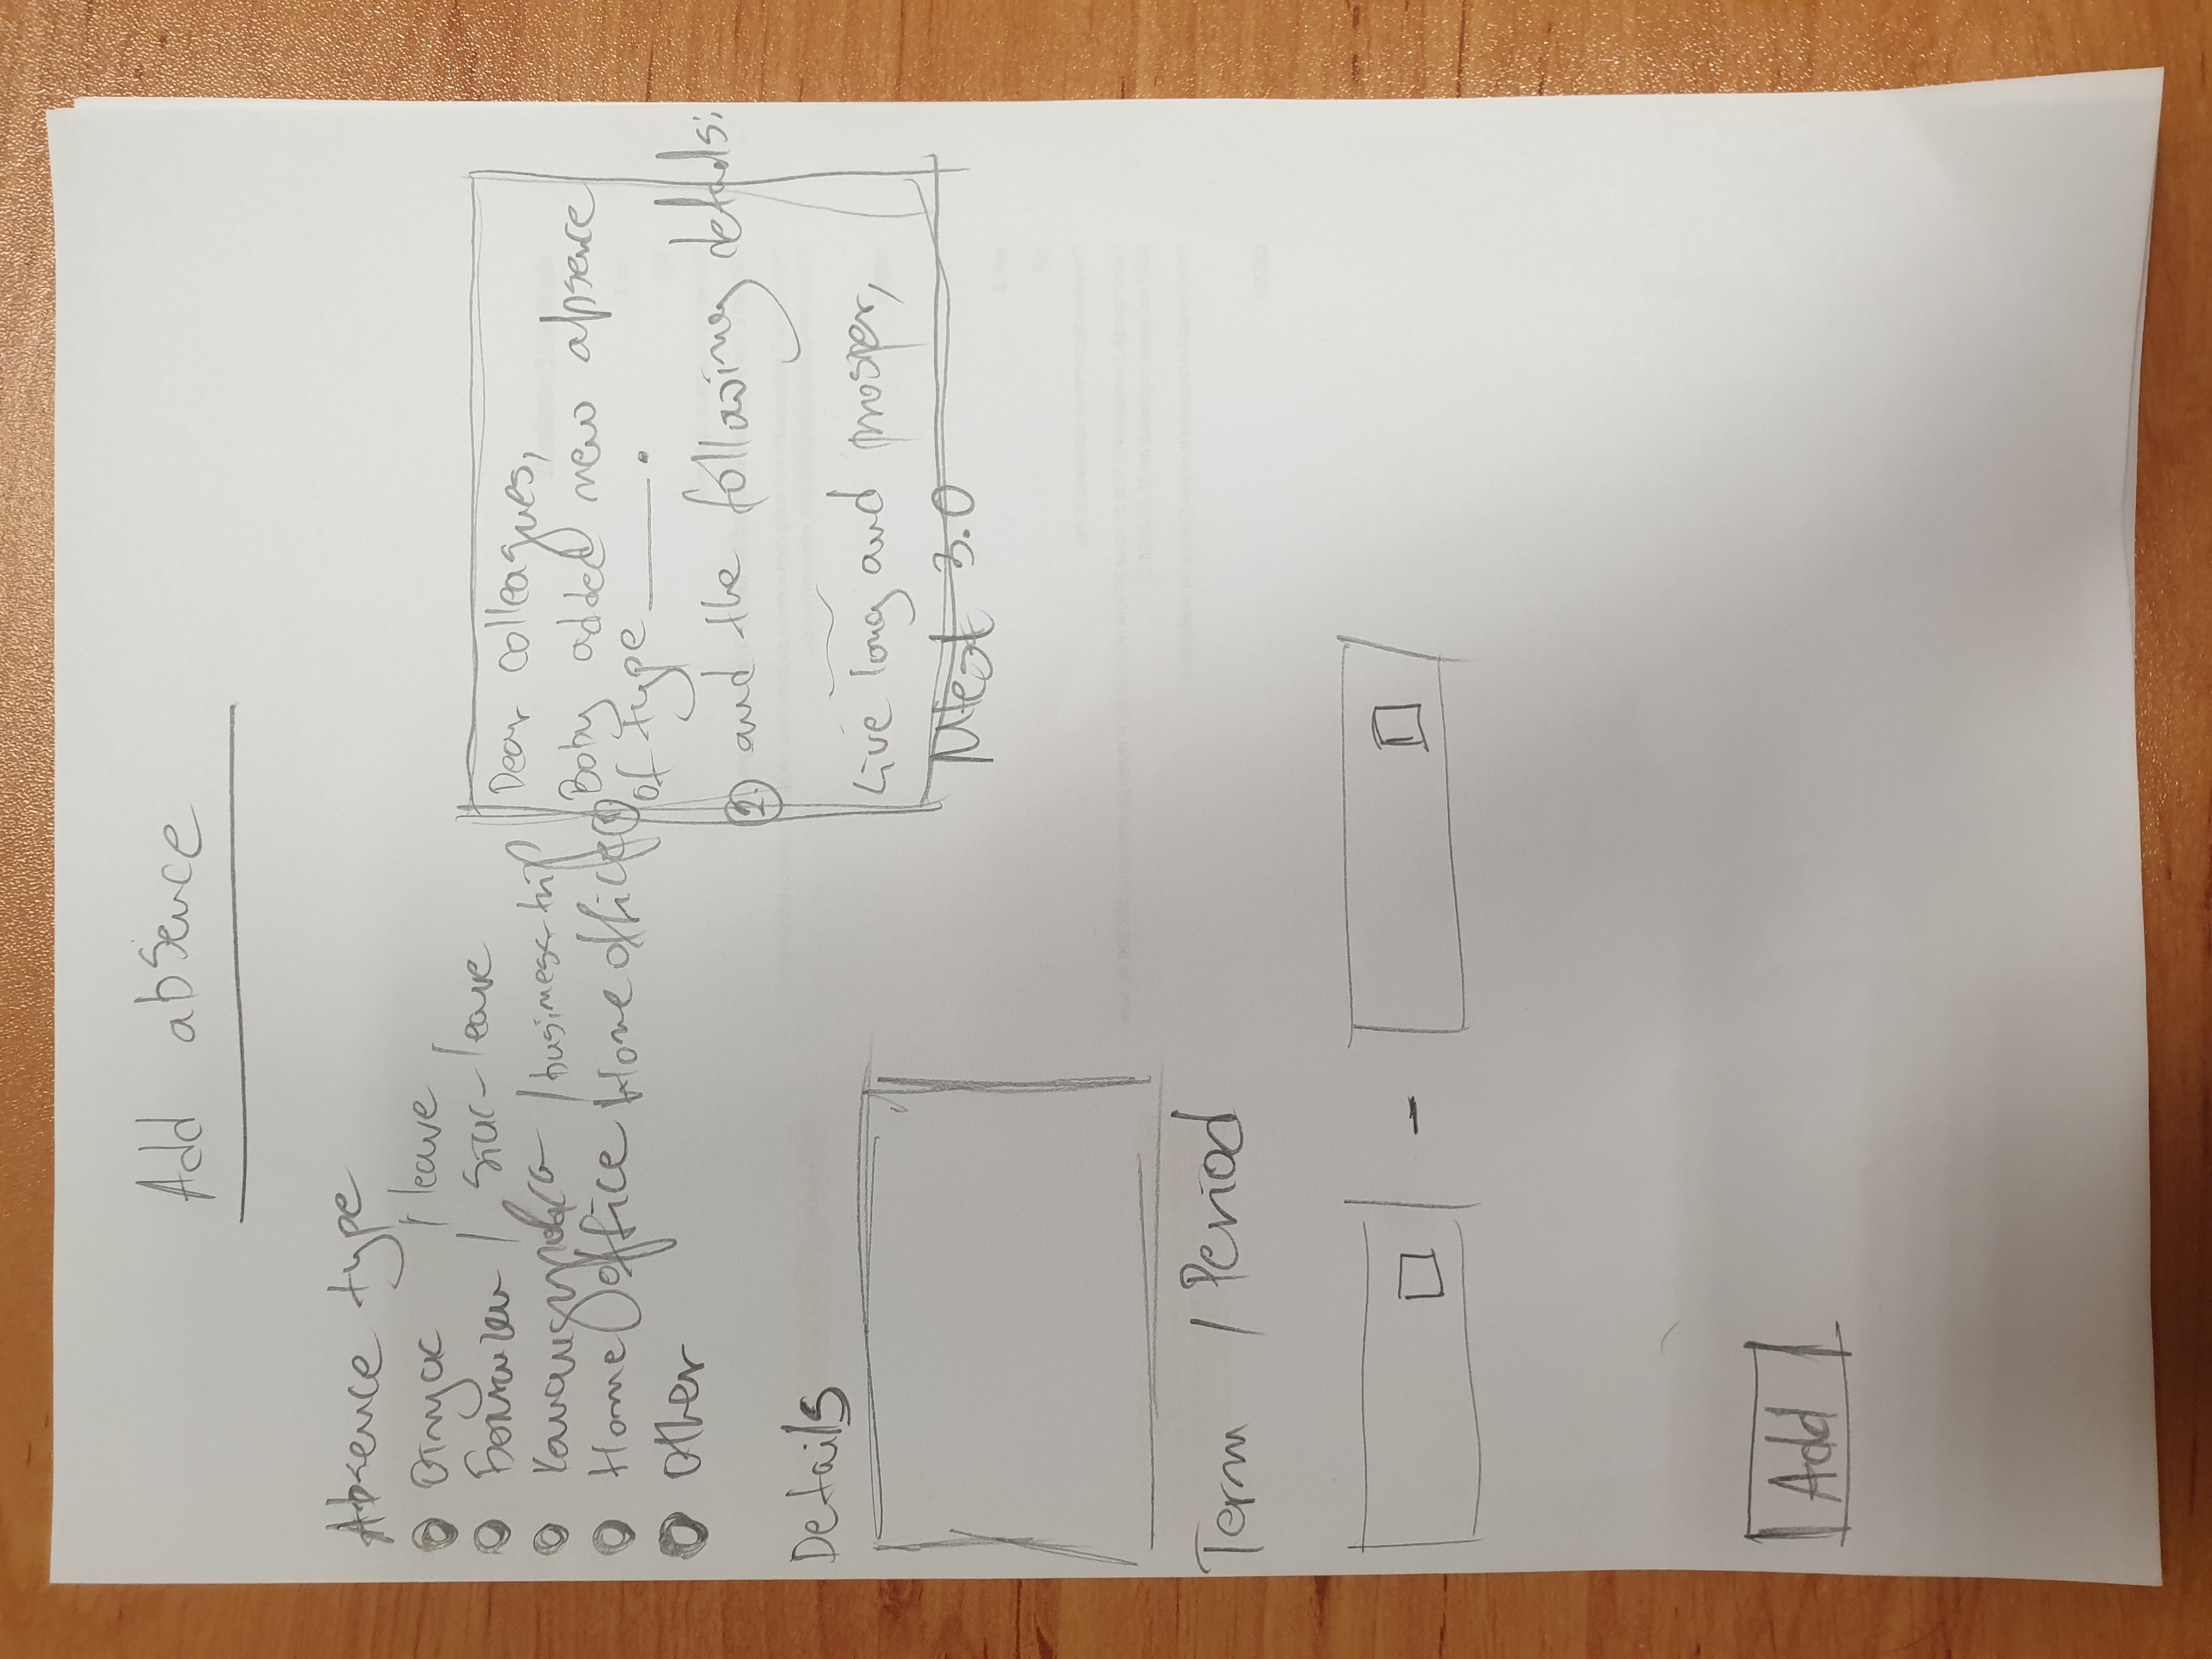 Add absence
Absence type
Отпуск / leave
Болничен / sick-leave
Командировка / business trip
Home office Home office
Other
Dear colleagues,
Boby added new absence
of type ______.
2. and the following details:
Live long and prosper,
3.0
Details
Term / Period
-
Add